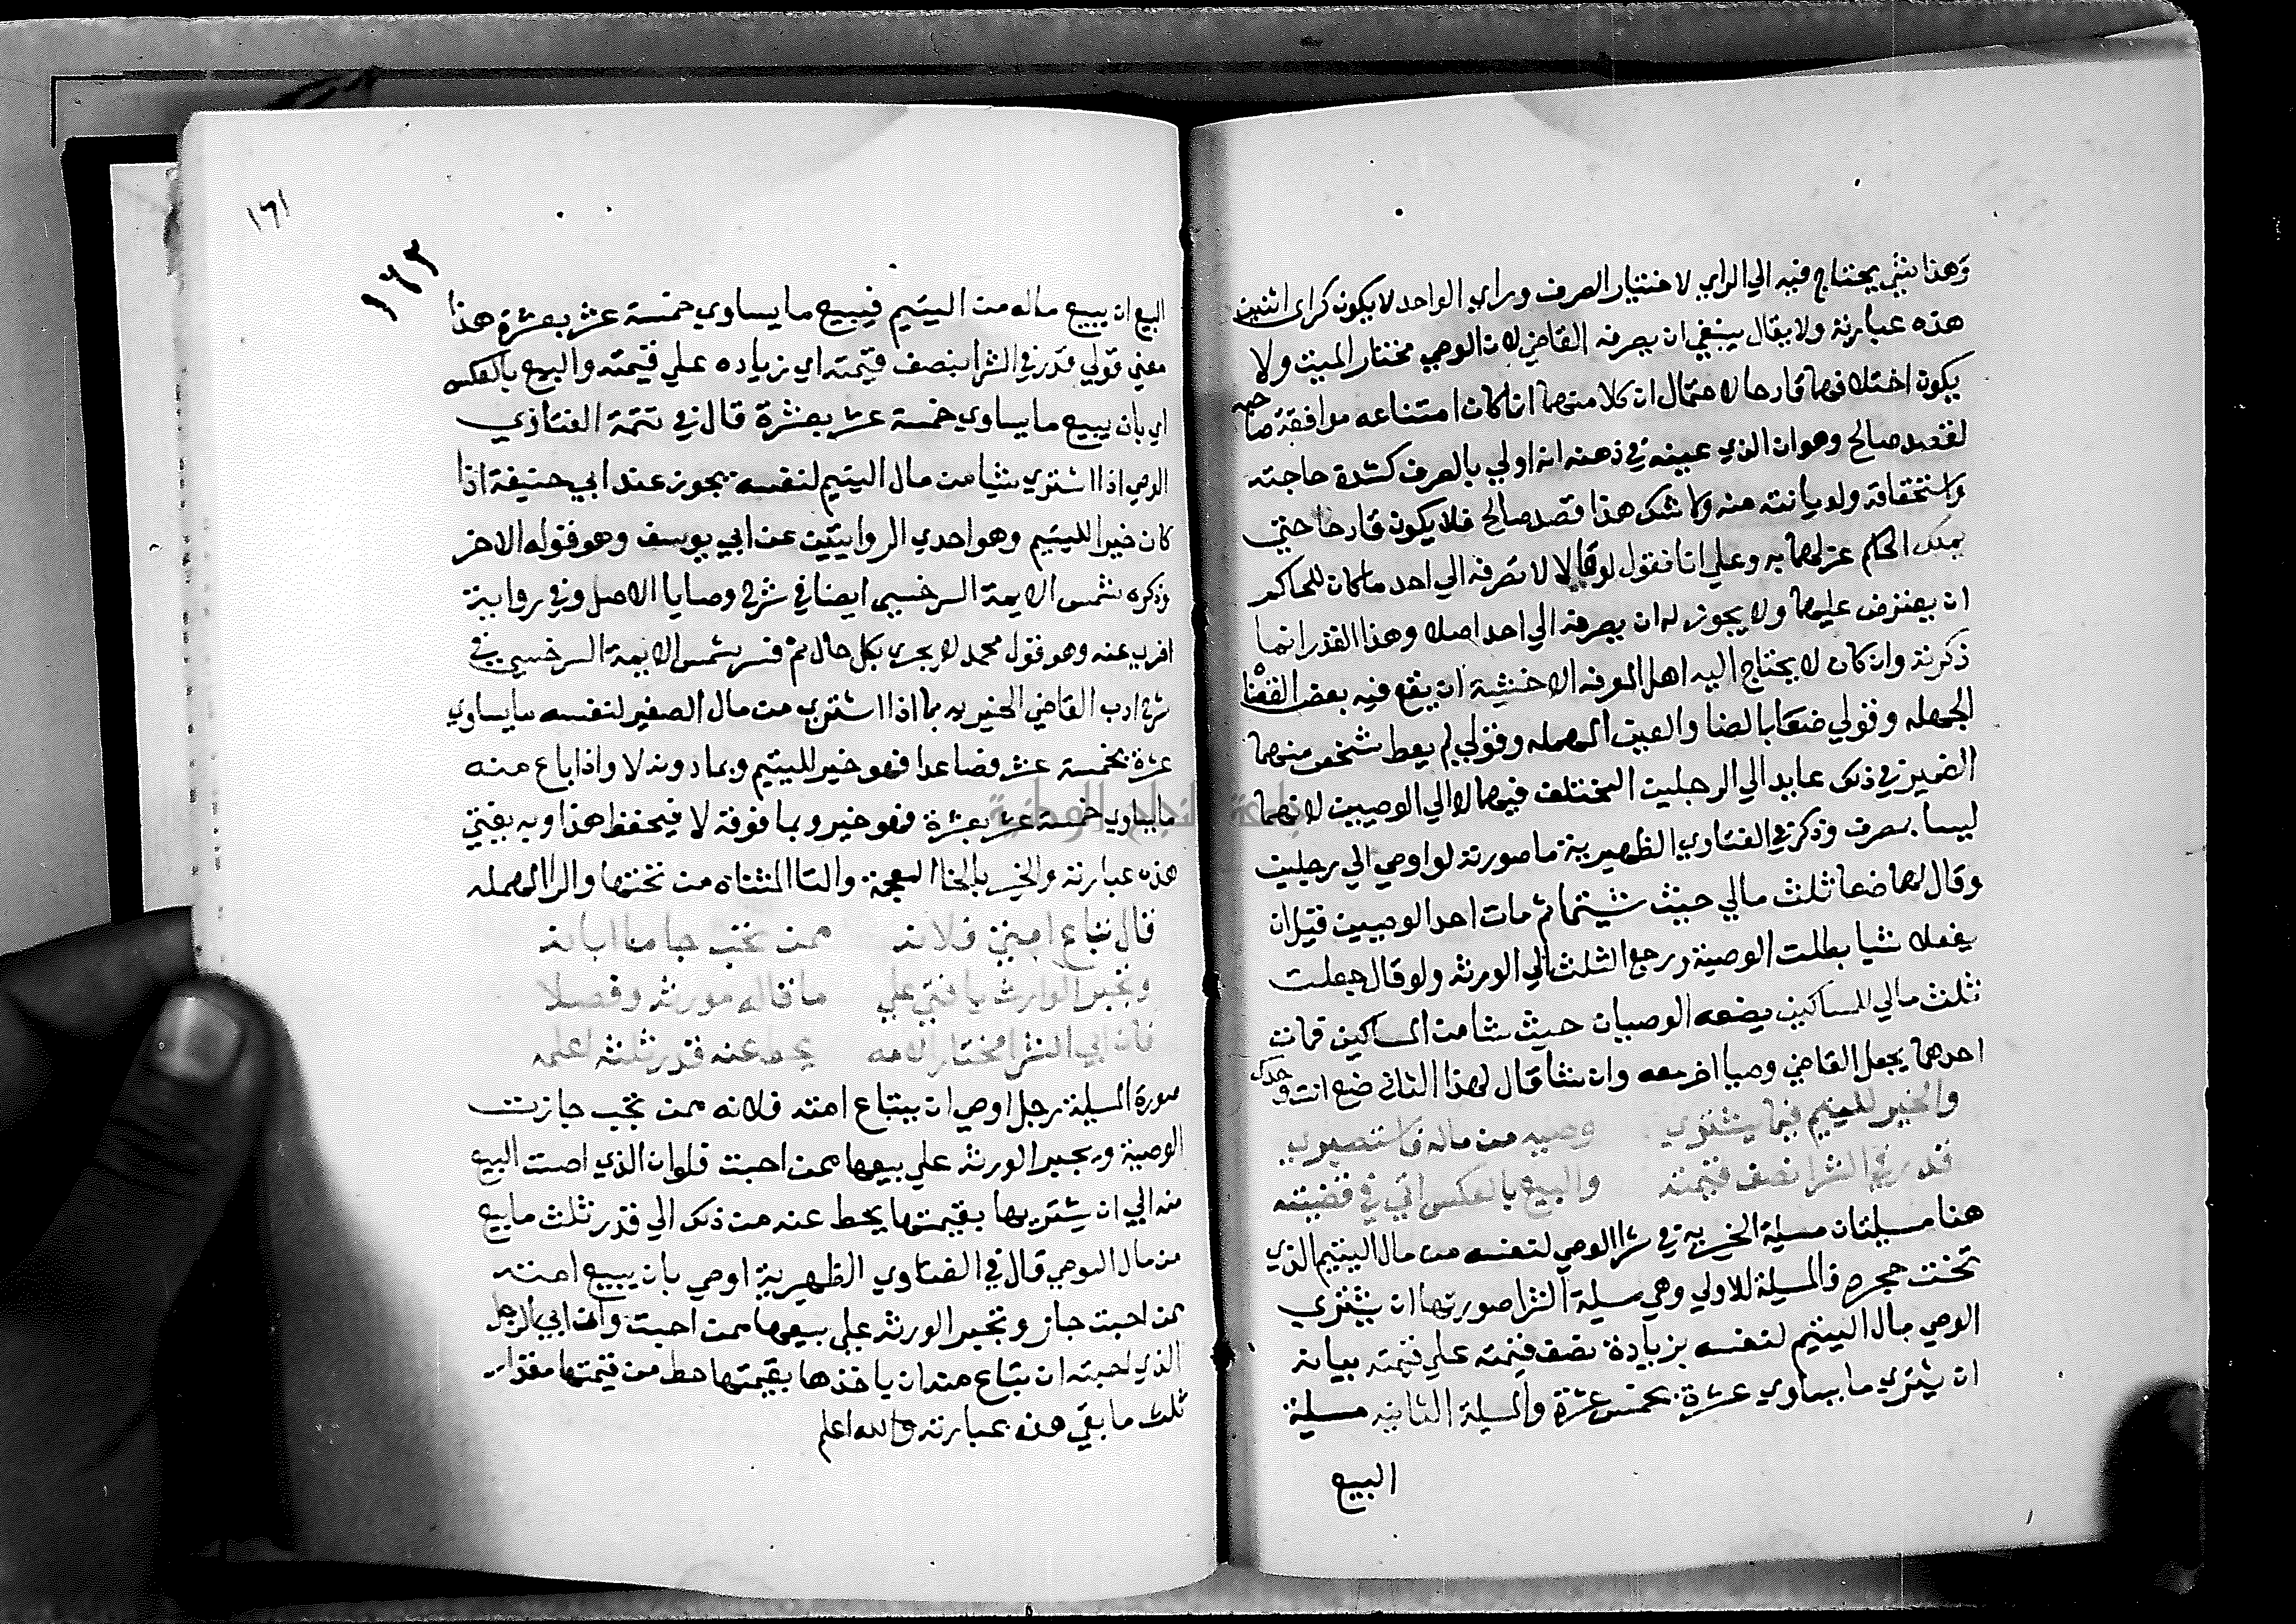 وهذا شي يحتاج فيه الي الراي لاختيار الصرف وراي الواحد لا يكون كراي اثنين
هذه عبارته ولا يقال ينبغي ان يصرفه القاضي لان الوصي مختار الميت ولا
يكون اختلافهما قادحا لاحتمال ان كلا منهما انما كان امتناعه موافقة صاحبه
لقصد صالح وهو ان الذي عينه في ذهنه انه اولي بالصرف كشدة حاجته
واستحقاقه ولديانته منه ولا شك هذا قصد صالح فلا يكون قادحا حتي
يملك الحاكم عزلهما به وعلي انا نقول لو قالا لا نصرفه الي احد ما كان للحاكم
ان يعترض عليهما ولا يجوز له ان يصرفه الي احد اصلا وهذا القدر انما
ذكرته وان كان لا يحتاج اليه اهل المعرفه الا خشية ان يقع فيه بعض القضا
الجهله وقولي ضعا بالضا والعين المهمله وقولي لم يعط شخص منهما
الضمير في ذلك عايد الي الرجلين المختلف فيهما لا الي الوصيين لانهما
ليسا بصرف وذكر في الفتاوي الظهيرية ما صورته لو اوصي الي رجلين
وقال لهما ضعا ثلث مالي حيث شيتما ثم مات احد الوصيين قبل ان
يفعلا شيا بطلت الوصية ورجع الثلث الي الورثه ولو قال جعلت
ثلث مالي للمساكين يضعه الوصيان حيث شا من المساكين فمات
احدهما يجعل القاضي وصيا اخر معه وان شا قال لهذا الثاني ضع انت وحدك
والخير لليتيم فيما يشتري وصيه من ماله فاستصوب
قدر في الشرا نصف قيمته والبيع بالعكس اتي في قضيته
هنا مسيلتان مسيلة الخيرية في شرا الوصي لنفسه من مال اليتيم الذي
تحت حجره فالمسيلة الاولي وهي مسيلة الشرا صورتها ان يشتري
الوصي مال اليتيم لنفسه بزيادة نصف قيمته علي قيمته بيانه
ان يشتري ما يساوي عشرة بخمس عشرة والمسيلة الثانيه مسيلة
البيع
١٦١
١٦٢
البيع ان يبيع ماله من اليتيم فيبيع ما يساوي خمسة عشر بعشرة هذا
معني قولي قدر في الشرا بنصف قيمته اي زياده علي قيمته والبيع بالعكس
اي بان يبيع ما يساوي خمسة عشر بعشرة قال في تتمة الفتاوي
الوصي اذا اشتري شيا من مال اليتيم لنفسه يجوز عند ابي حنيفة اذا
كان خيرا لليتيم وهو احدي الروايتين عن ابي يوسف وهو قوله الاخر
وذكره شمس الايمة السرخسي ايضا في شرح وصايا الاصل وفي رواية
اخري عنه وهو قول محمد لا يجوز بكل حال ثم فسر شمس الايمة السرخسي في
شرح ادب القاضي الخيريه بما اذا اشتري من مال الصغير لنفسه ما يساوي
عشرة بخمسة عشر فصاعدا فهو خير لليتيم وبما دونه لا واذا باع منه
ما يساوي خمسة عشر بعشرة فهو خير وبما فوقه لا فيحفظ هذا وبه يفتي
هذه عبارته والخير بالخا المعجمة والتا المثناه من تحتها والرا المهمله
قال تباع امتي فلانه ممن تحب جا ما ابانه
وتجبر الوارث يا فتي علي ما قاله مورثه وفصلا
فان ابي الشرا مختار الامه يحط عنه قدر ثلث اعلمه
صورة المسيلة رجل اوصي ان يبتاع امته فلانه ممن تحب جازت
الوصية ويجبر الورثه علي بيعها ممن احبت فلو ان الذي احبت البيع
منه ابي ان يشتريها بقيمتها يحط عنه من ذلك الي قدر ثلث ما بيع
من مال الموصي قال في الفتاوي الظهيرية اوصي بان يبيع امته
ممن احبت جاز وتجبر الورثه علي بيعها ممن احبت وان ابي الرجل
الذي احبته ان تباع منه ان ياخذها بقيمتها حط من قيمتها مقدار
ثلث ما بقي هذه عبارته والله اعلم